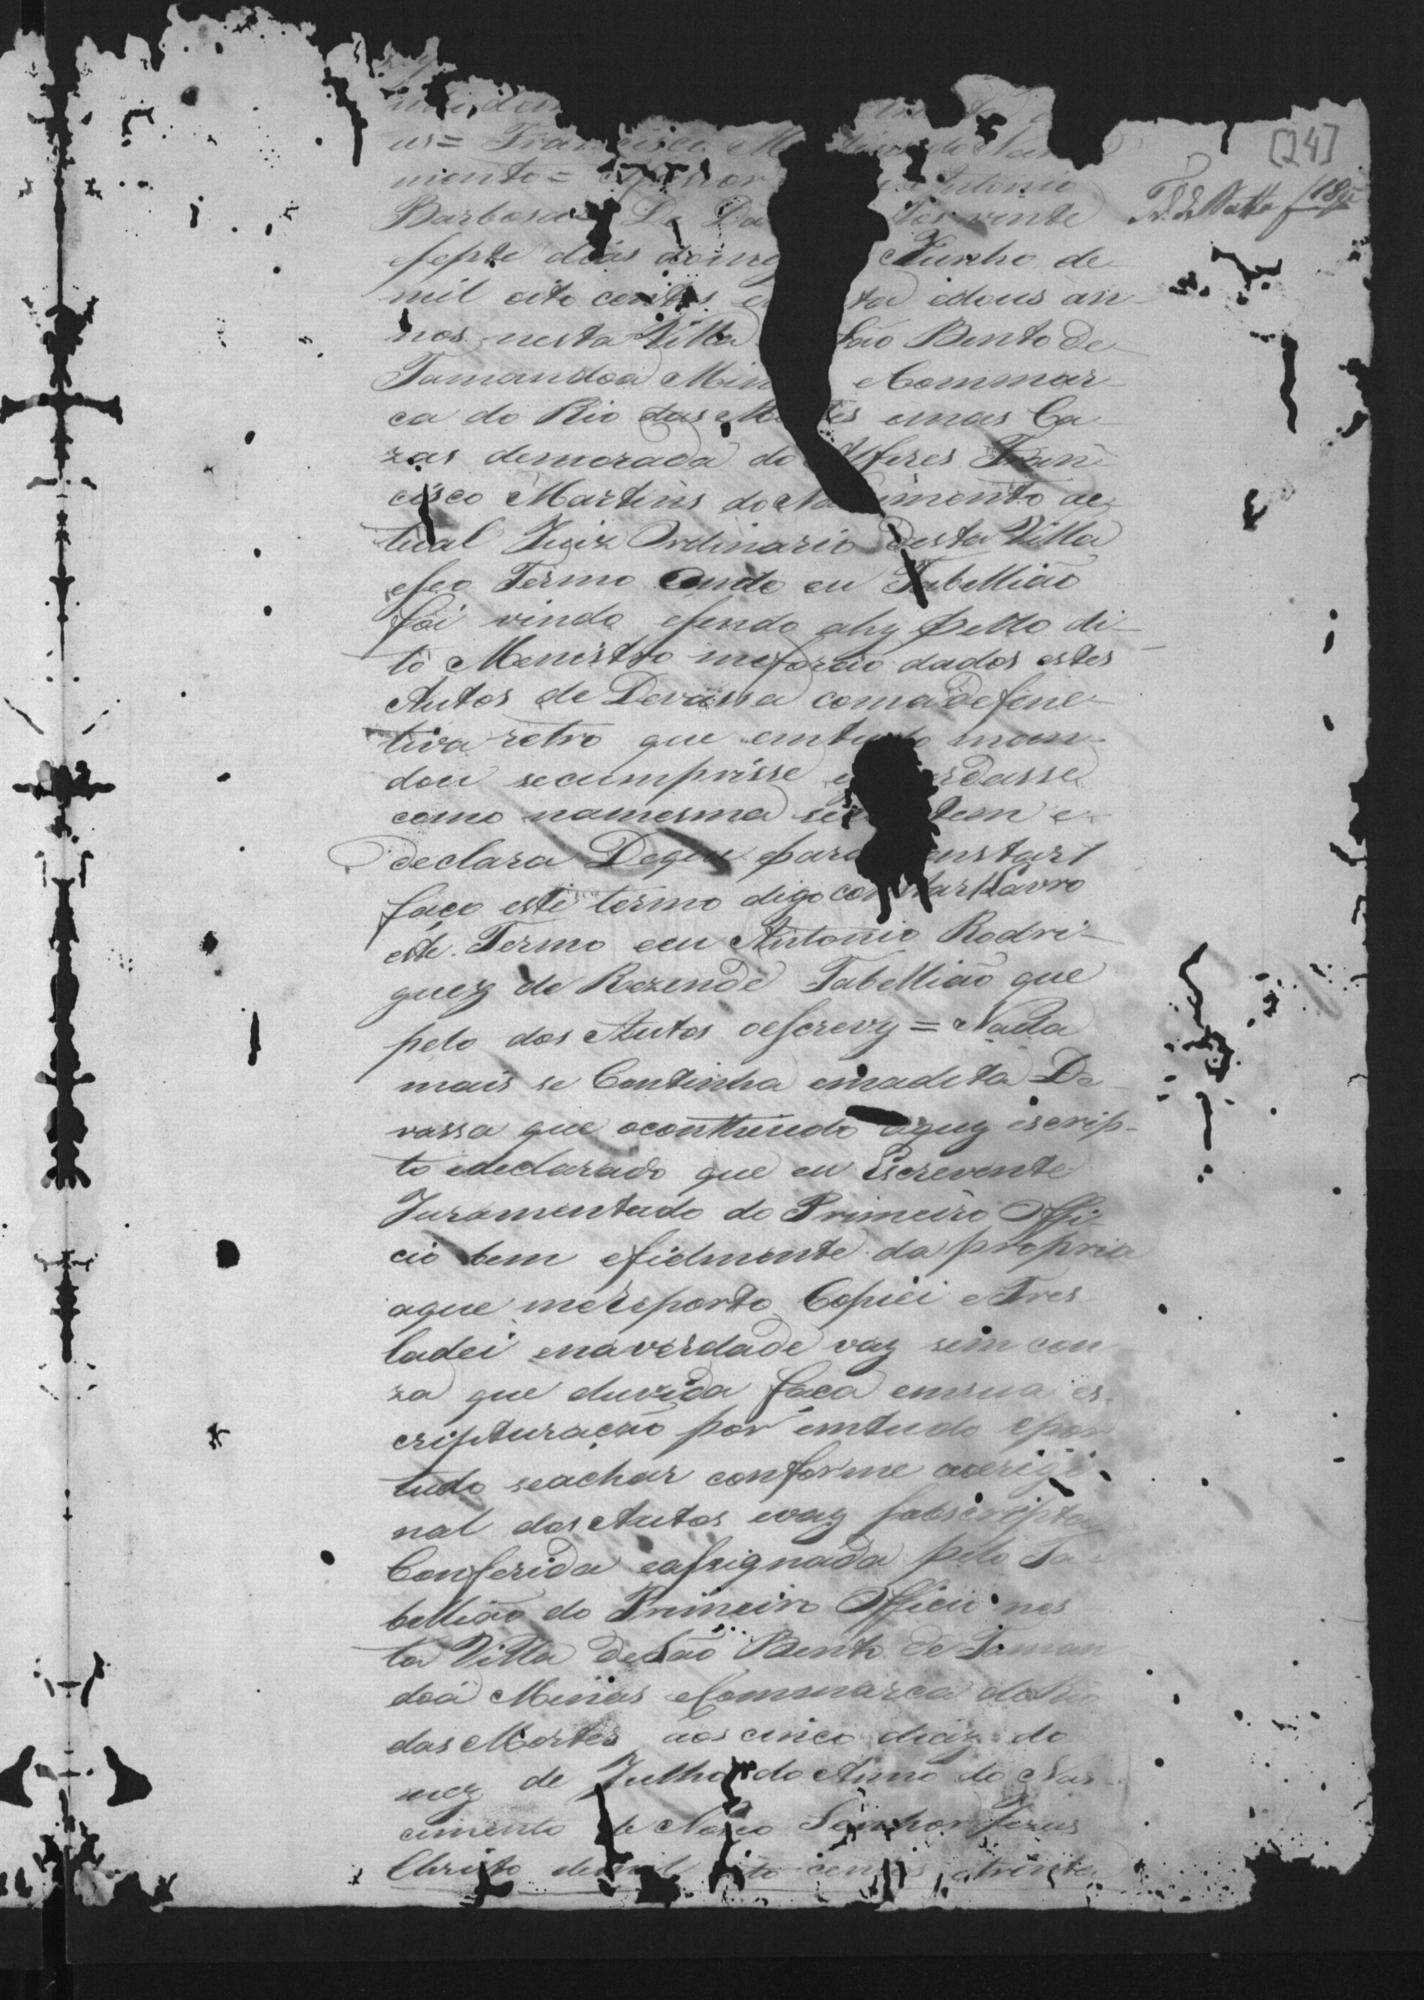 [24]
us= Francisco M do Nas
mento= Antonio
Barbosa De Da tos vinte
esepte dias domez Junho de
mil oito centos e ta edous an
nos nesta Villa São Bento de
Tamandoá Minas eCommar
ca do Rio das Mortes emas Ca
zas demorada do Alferes Fran
cisco Martins do Nascimento ac
tual Juiz Ordinario desta Villa
eseo Termo onde eu Tabellião
foi vindo esendo ahy pello di
to Menistro meforão dados estes
Autos de Devassa coma defene
tiva retro que emtudo man
dou secumprisse e guardasse
como namesma se contem e
declara Deque para constar
faço este termo digo constar Lavro
este Termo eeu Antonio Rodri
guez de Rezende Tabellião que
pelo dos Autos oescrevy = Nada
mais se Continha emadita De
vassa que ocontheudo aquy escrip
to edeclarado que eu Escrevente
Juramentado do Primeiro Offi
cio bem efielmente da propria
aque mereporto Copiei eTres
ladei enaverdade vay sem cou
za que duvida faça emsua es
cripturação por emtudo epor
tudo seachar conforme aorigi
nal dos Autos evay sobscripta
Conferida eassignada pelo Ta
bellião do Primeiro Officio nes
ta Villa deSão Bento de Taman
doá Minas eCommarca do Rio
das Mortes aos cinco diaz do
mez de Julho do Anno do Nas
cimento de Nosso Senhor Jezus
Christo demil oito centos etrinta